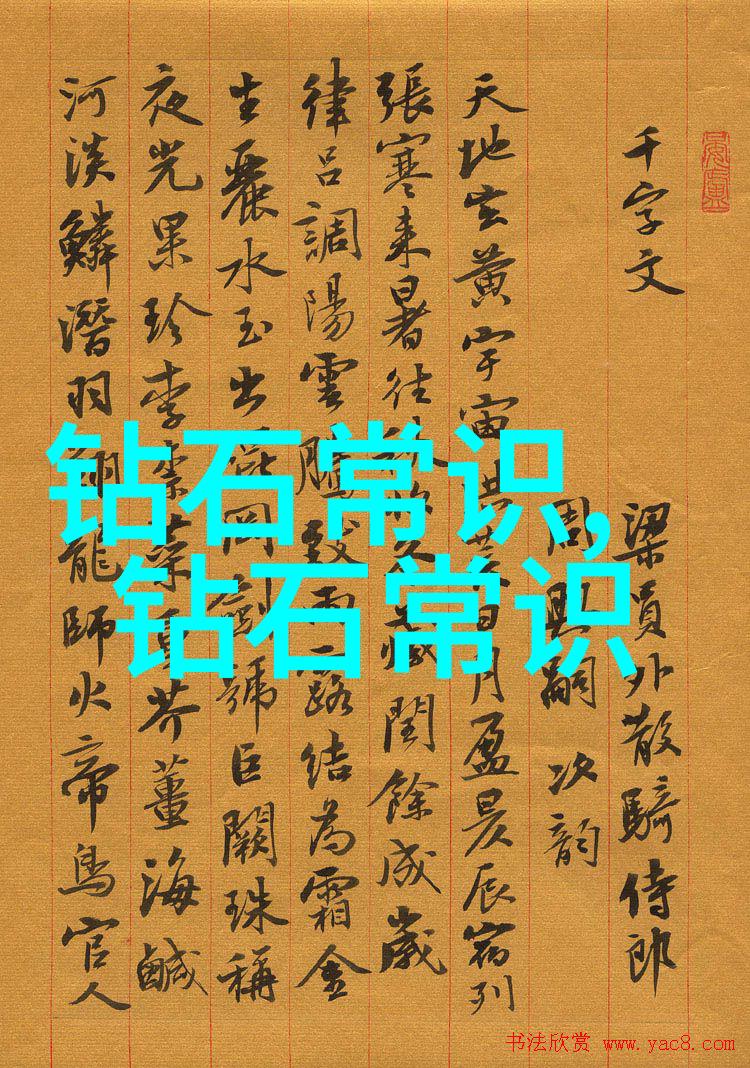 千字文
梁員外散騎侍郎
周興嗣次韵
天地玄黄宇宙洪荒日月盈昃辰宿列
張寒来暑往秋收冬藏閏餘成歲
律吕調陽雲騰致雨露結為霜金
生麗水玉出崑岡劍號巨闕珠稱
夜光果珍李柰菜重芥薑海鹹
河淡鱗潛羽翔龍師火帝鳥官人
钻石常识,
钻石常识
书法欣赏 www.yac8.com